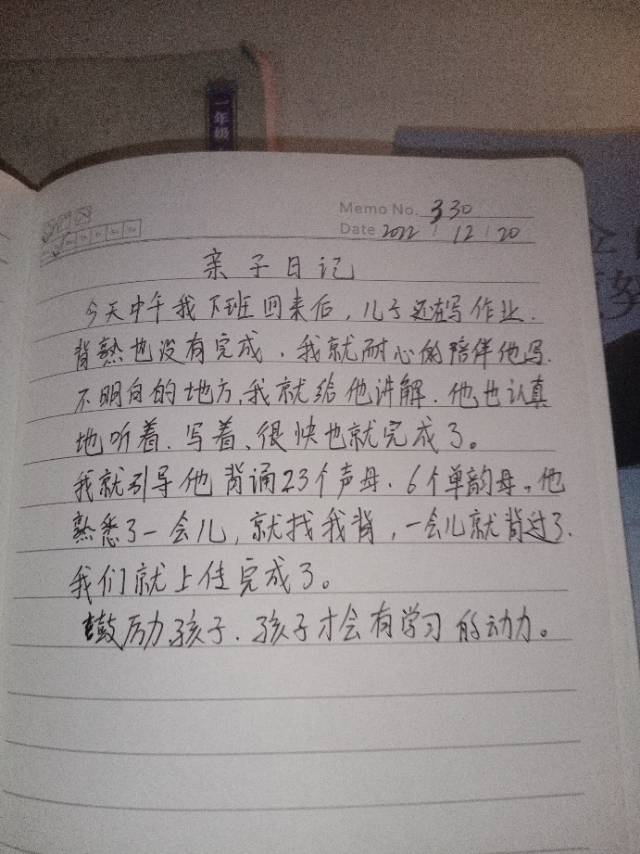 一年级
Memo No. 330
Date 2022 / 12 / 20
亲子日记
今天中午我下班回来后，儿子还在写作业.
背熟也没有完成、我就耐心的陪伴他写.
不明白的地方,我就给他讲解.他也认真
地听着.写着、很快也就完成了。
我就引导他背诵23个声母.6个单韵母。他
熟悉了一会儿,就找我背,一会儿就背过了.
我们就上传完成了。
鼓励孩子.孩子才会有学习的动力。